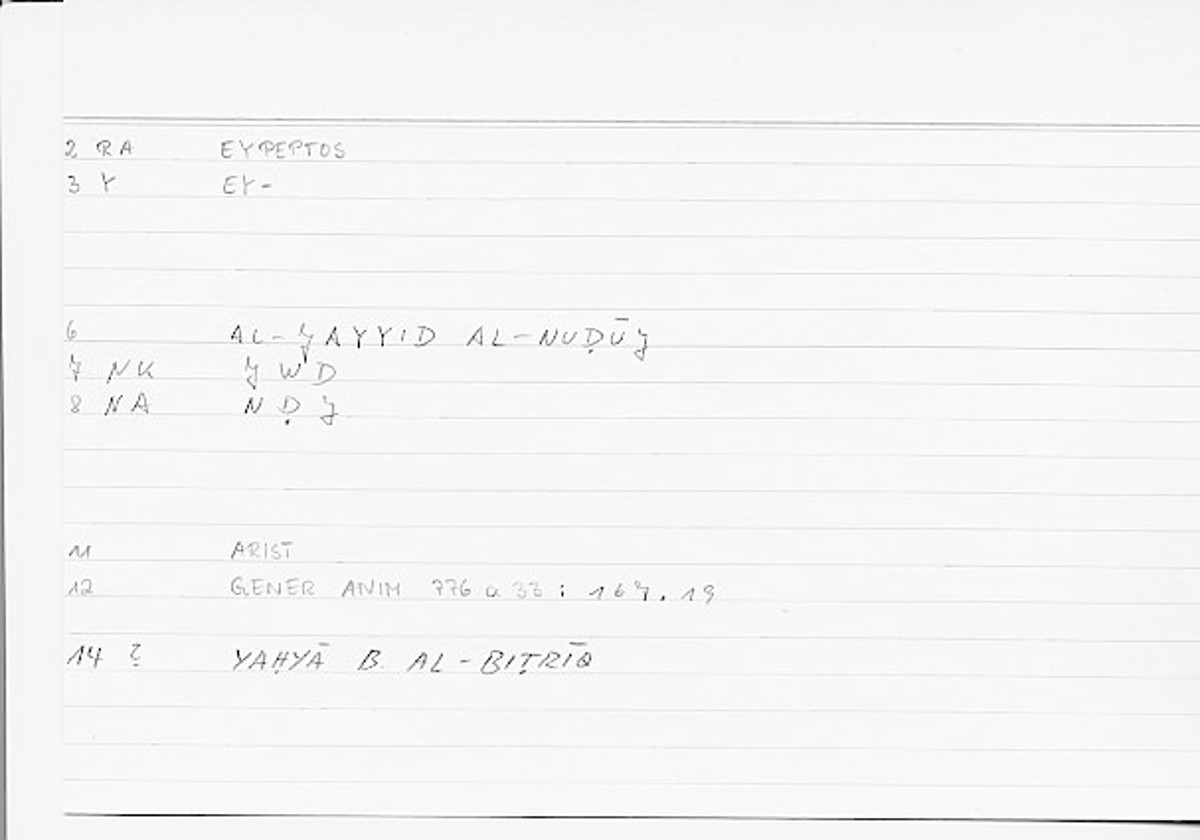 2 RA EYPEPTOS
3 Y EY-
6 AL-JAYYID AL-NUḌŪJ
7 NK J W D
8 NA N Ḍ J
11 ARIST
12 GENER ANIM 776 a 33 : 167.19
14 ? YAḤYĀ B. AL-BIṬRĪQ